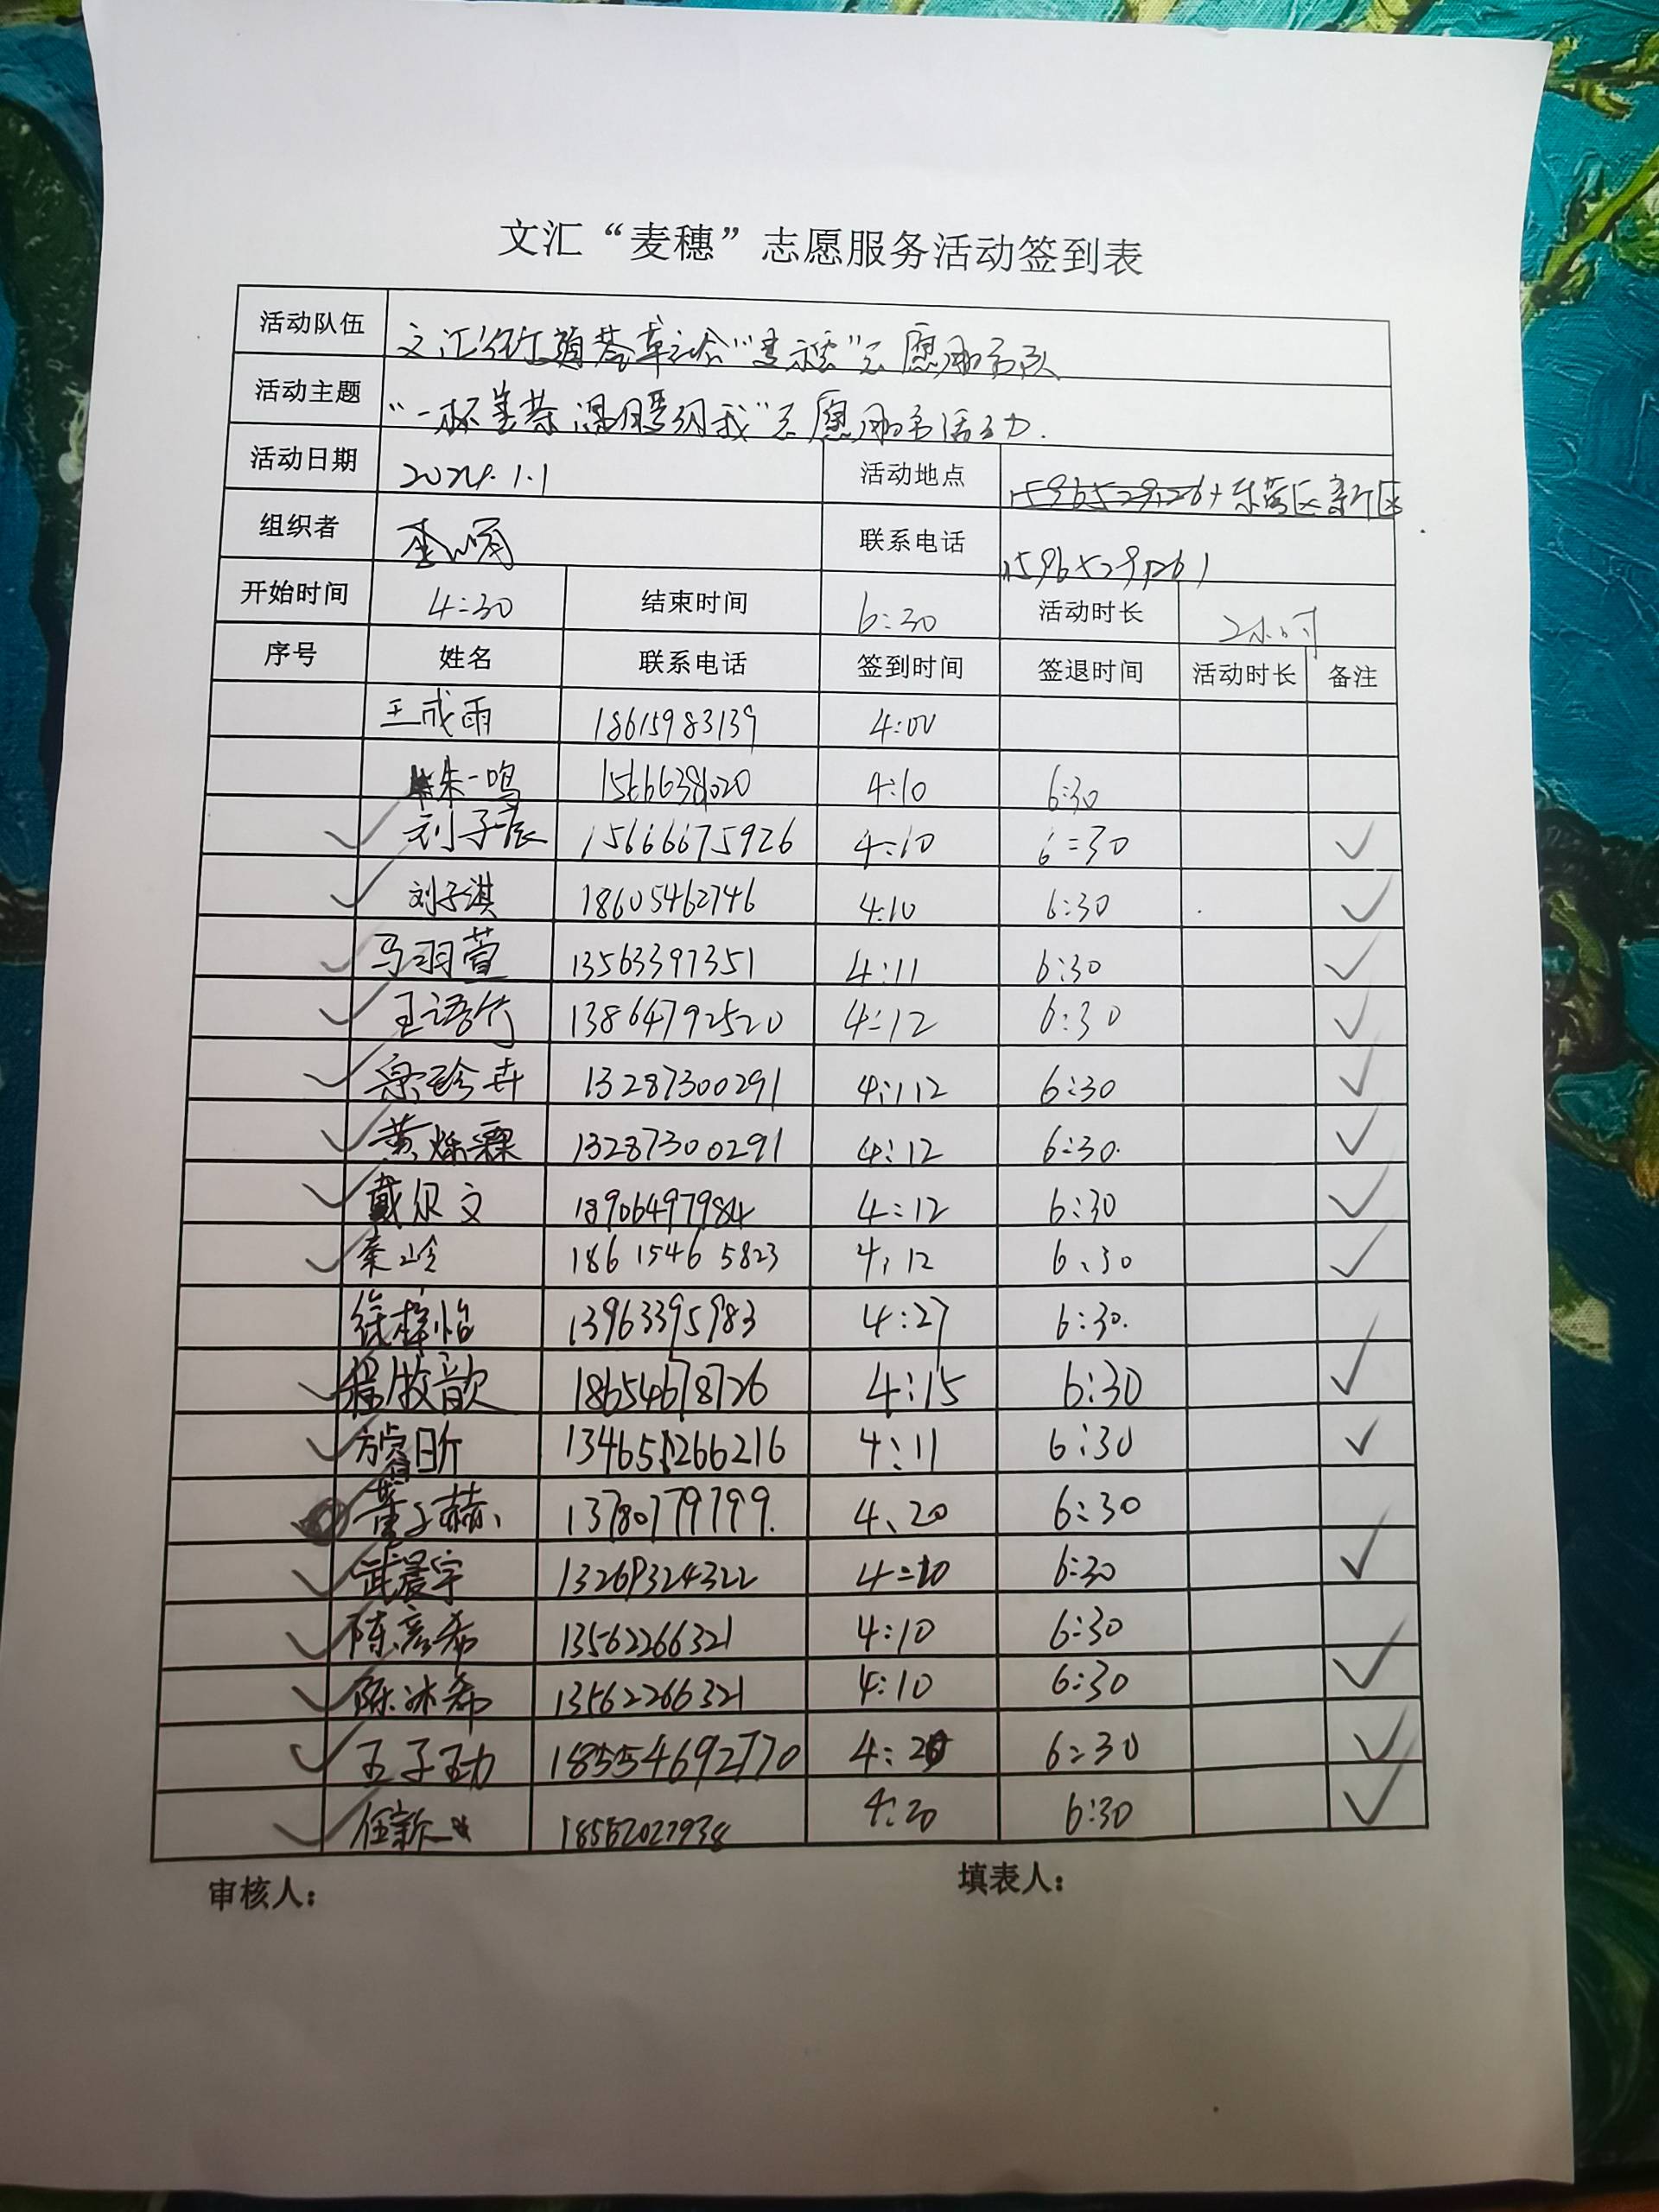 文汇“麦穗”志愿服务活动签到表
活动队伍 文汇 “麦穗”志愿服务队
活动主题 “一杯姜茶 温暖 我”志愿服务活动.
活动日期 2024.1.1 活动地点 东营区
组织者 联系电话 15965292261
开始时间 4:30 结束时间 6:30 活动时长 2小时
序号 姓名 联系电话 签到时间 签退时间 活动时长 备注
王成雨 18615983139 4:00
朱一鸣 4:10 6:30
✓ 刘子辰 15666675926 4:10 6:30 ✓
✓ 刘子淇 18605462746 4:10 6:30 ✓
✓ 马羽萱 13563397351 4:11 6:30 ✓
✓ 王语竹 13864792520 4:12 6:30 ✓
✓ 梁珍卉 13287300291 4:112 6:30 ✓
✓ 黄烁霖 13287300291 4:12 6:30. ✓
✓ 戴尔文 18906497984 4:12 6:30 ✓
✓ 秦岭 186 1546 5823 4:12 6:30 ✓
徐梓怡 13963395983 4:27 6:30.
✓ 程牧歆 18654678726 4:15 6:30 ✓
✓ 4:11 6:30 ✓
董子赫 13780779799. 4:20 6:30
✓ 武晨宇 13269324322 4:10 6:30 ✓
✓ 陈彦希 13562266321 4:10 6:30
✓ 陈冰希 13562266321 4:10 6:30 ✓
✓ 王子玏 18554692770 4:20 6:30 ✓
✓ 任新一 4:20 6:30 ✓
审核人： 填表人：